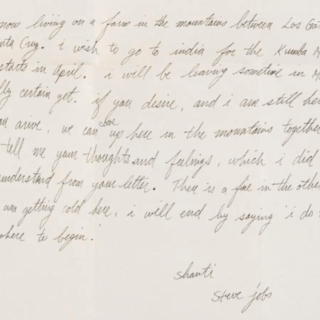 now living on a farm in the mountains between Los Ga
ta Cruz. i wish to go to india for the Kumba M
starts in April. i will be leaving sometime in M
lly certain yet. if you desire, and i am still her
u arive, we can up here in the mountains together
tell me your thoughts and feelings, which i did
understand from your letter. There is a fire in the othe
am getting cold here, i will end by saying 'i do
where to begin.'
shanti
steve jobs